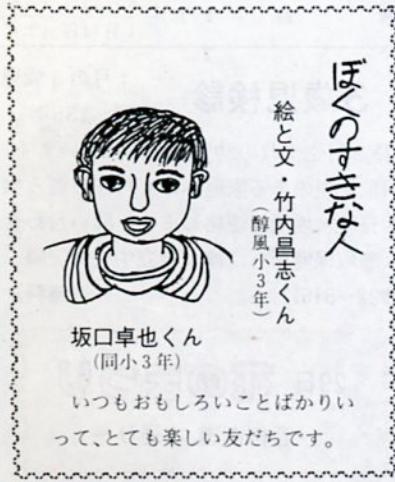 ぼくのすきな人
絵と文・竹内昌志くん
(醇風小3年)
坂口卓也くん
(同小3年)
いつもおもしろいことばかりい
って、とても楽しい友だちです。